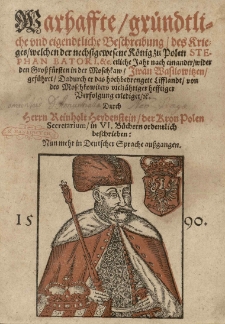 Warhaffte / gründtli-
che vnd eigendtliche Beschreibung / des Krie-
ges / welchen der nechstgewesene König zu Polen STE-
PHAN BATORI, &c. etliche Jahr nach einander / wider
den Großfürsten in der Moschkaw / Iwan Wasilowitzen /
geführet / Dadurch er das hochbedrengete Lifflandt / von
des Moschkowiters vieljähriger hefftiger
Verfolgung erlediget / &c.
Durch
Herrn Reinholt Heydenstein / der Kron Polen
Secretarium / in VI. Büchern ordentlich
beschrieben:
Nun mehr in Deutscher Sprache außgangen.
15 90.